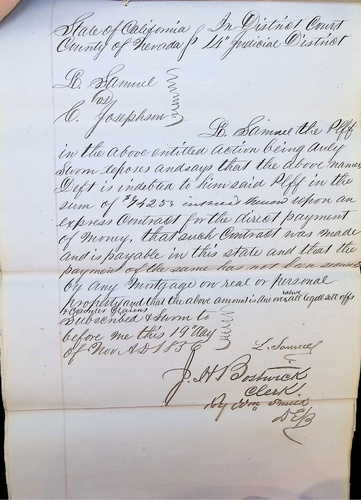 State of California } In District Court
County of Nevada } 14th Judicial District
L. Samuel
vs
C. Josephson
L. Samuel the Plff
in the above entitled action being duly
Sworn deposes and says that the above named
Deft is indebted to him said Plff in the
sum of $ upon an
express Contract for the direct payment
of money, that such Contract was made
and is payable in this state and that the
payment of the same has not been secured
by any Mortgage on real or personal
property and that the above amount is due over all legal set offs
& Counter Claims
Subscribed & Sworn to
before me this 19 day
of Nov AD 1856
L. Samuel
J. H Bostwick
Clerk.
By Wm